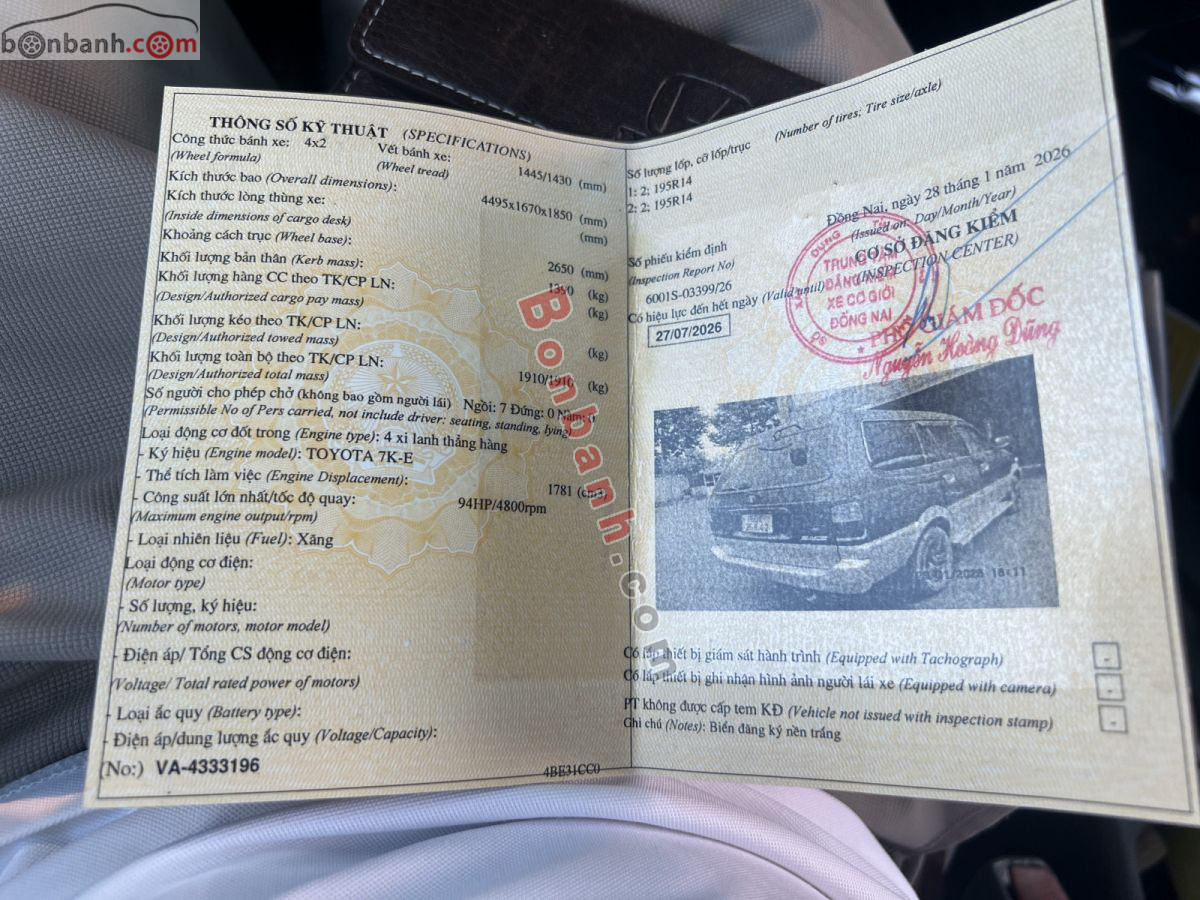 bonbanh.com
THÔNG SỐ KỸ THUẬT (SPECIFICATIONS)
Công thức bánh xe: 4x2 Vết bánh xe: 1445/1430 (mm)
(Wheel formula) (Wheel tread)
Kích thước bao (Overall dimensions): 4495x1670x1850 (mm)
Kích thước lòng thùng xe: (mm)
(Inside dimensions of cargo desk)
Khoảng cách trục (Wheel base): 2650 (mm)
Khối lượng bản thân (Kerb mass): (kg)
Khối lượng hàng CC theo TK/CP LN: (kg)
(Design/Authorized cargo pay mass)
Khối lượng kéo theo TK/CP LN: (kg)
(Design/Authorized towed mass)
Khối lượng toàn bộ theo TK/CP LN: 1910/1910 (kg)
(Design/Authorized total mass)
Số người cho phép chở (không bao gồm người lái) Ngồi: 7 Đứng: 0 Nằm: 0
(Permissible No of Pers carried, not include driver: seating, standing, lying)
Loại động cơ đốt trong (Engine type): 4 xi lanh thẳng hàng
- Ký hiệu (Engine model): TOYOTA 7K-E
- Thể tích làm việc (Engine Displacement): 1781 (cm3)
- Công suất lớn nhất/tốc độ quay: 94HP/4800rpm
(Maximum engine output/rpm)
- Loại nhiên liệu (Fuel): Xăng
Loại động cơ điện:
(Motor type)
- Số lượng, ký hiệu:
(Number of motors, motor model)
- Điện áp/ Tổng CS động cơ điện:
(Voltage/ Total rated power of motors)
- Loại ắc quy (Battery type):
- Điện áp/dung lượng ắc quy (Voltage/Capacity):
(No:) VA-4333196
4BE31CC0
Số lượng lốp, cỡ lốp/trục (Number of tires; Tire size/axle)
1: 2; 195R14
2: 2; 195R14
Đồng Nai, ngày 28 tháng 1 năm 2026
(Issued on: Day/Month/Year)
CƠ SỞ ĐĂNG KIỂM
(INSPECTION CENTER)
Số phiếu kiểm định
(Inspection Report No)
6001S-03399/26
Có hiệu lực đến hết ngày (Valid until)
27/07/2026
TRUNG TÂM
ĐĂNG KIỂM
XE CƠ GIỚI
ĐỒNG NAI
PHÓ GIÁM ĐỐC
Nguyễn Hoàng Dũng
Bonbanh.com
Có lắp thiết bị giám sát hành trình (Equipped with Tachograph) -
Có lắp thiết bị ghi nhận hình ảnh người lái xe (Equipped with camera) -
PT không được cấp tem KĐ (Vehicle not issued with inspection stamp) -
Ghi chú (Notes): Biển đăng ký nền trắng